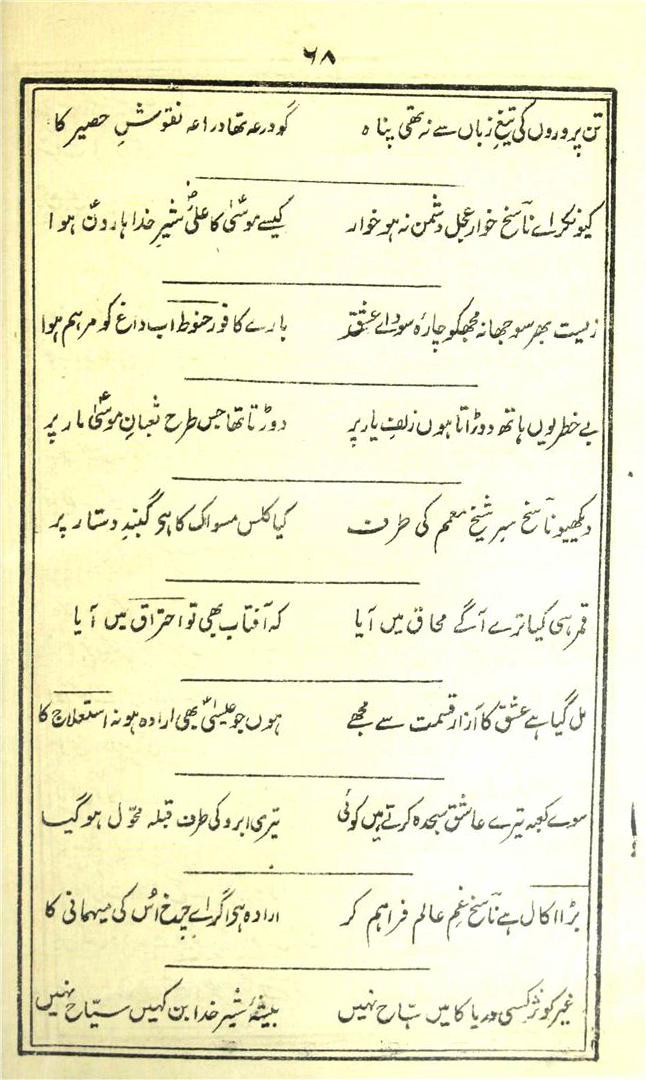 ۶۸
تن پروروں کی تیغِ زباں سے نہ تھی پناہ گو درعہ تھا دراعہ نقوشِ حصیر کا
کیونکر اے ناسخ خوار عجل دشمن نہ ہو خوار کیسے موسیٰؑ کا علیؓ شیرِ خدا ہارونؑ ہوا
زیست بھر سوجھا نہ مجھکو چارۂ سودائے عشق بارے کافور حنوط اب داغ کو مرہم ہوا
بے خطر یوں ہاتھ دوڑاتا ہوں زلفِ یار پر دوڑتا تھا جس طرح ثعبانِ موسیٰؑ مار پر
دیکھیو ناسخ سرِ شیخ معمم کی طرف کیا کلس مسواک کا ہی گنبدِ دستار پر
قمر ہی کیا ترے آگے محاق میں آیا کہ آفتاب بھی تو احتراق میں آیا
مل گیا ہے عشق کا آزار قسمت سے مجھے ہوں جو عیسیٰؑ بھی ارادہ ہو نہ استعلاج کا
سوے کعبہ تیرے عاشق سجدہ کرتے ہیں کوئی تیری ابرو کی طرف قبلہ محوّل ہو گیا
بڑا اکال ہے ناسخ غمِ عالم فراہم کر ارادہ ہی اگر اے چرخ اُس کی میہمانی کا
غیر کوثر کسی دریا کا میں سبّاح نہیں بیشۂ شیرِ خدا بن کہیں سیّاح نہیں